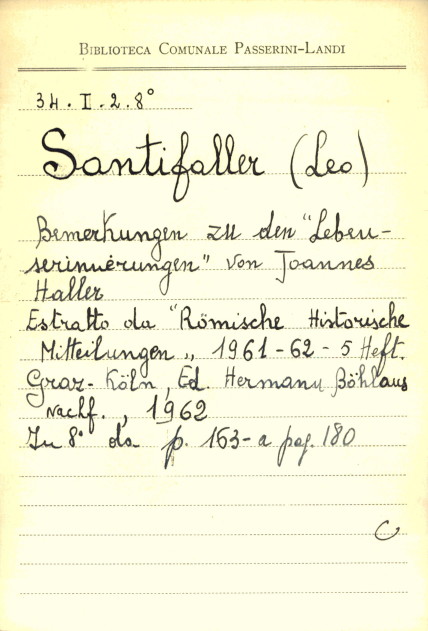 BIBLIOTECA COMUNALE PASSERINI-LANDI
34. I. 2. 8°
Santifaller (Leo)
Bemerkungen zu den "Leben-
serinnerungen" von Joannes
Haller
Estratto da "Römische Historische
Mitteilungen„ 1961-62 - 5 Heft.
Graz-Köln, Ed. Hermann Böhlaus
Nachf., 1962
In 8° da p. 163 - a pag. 180
C